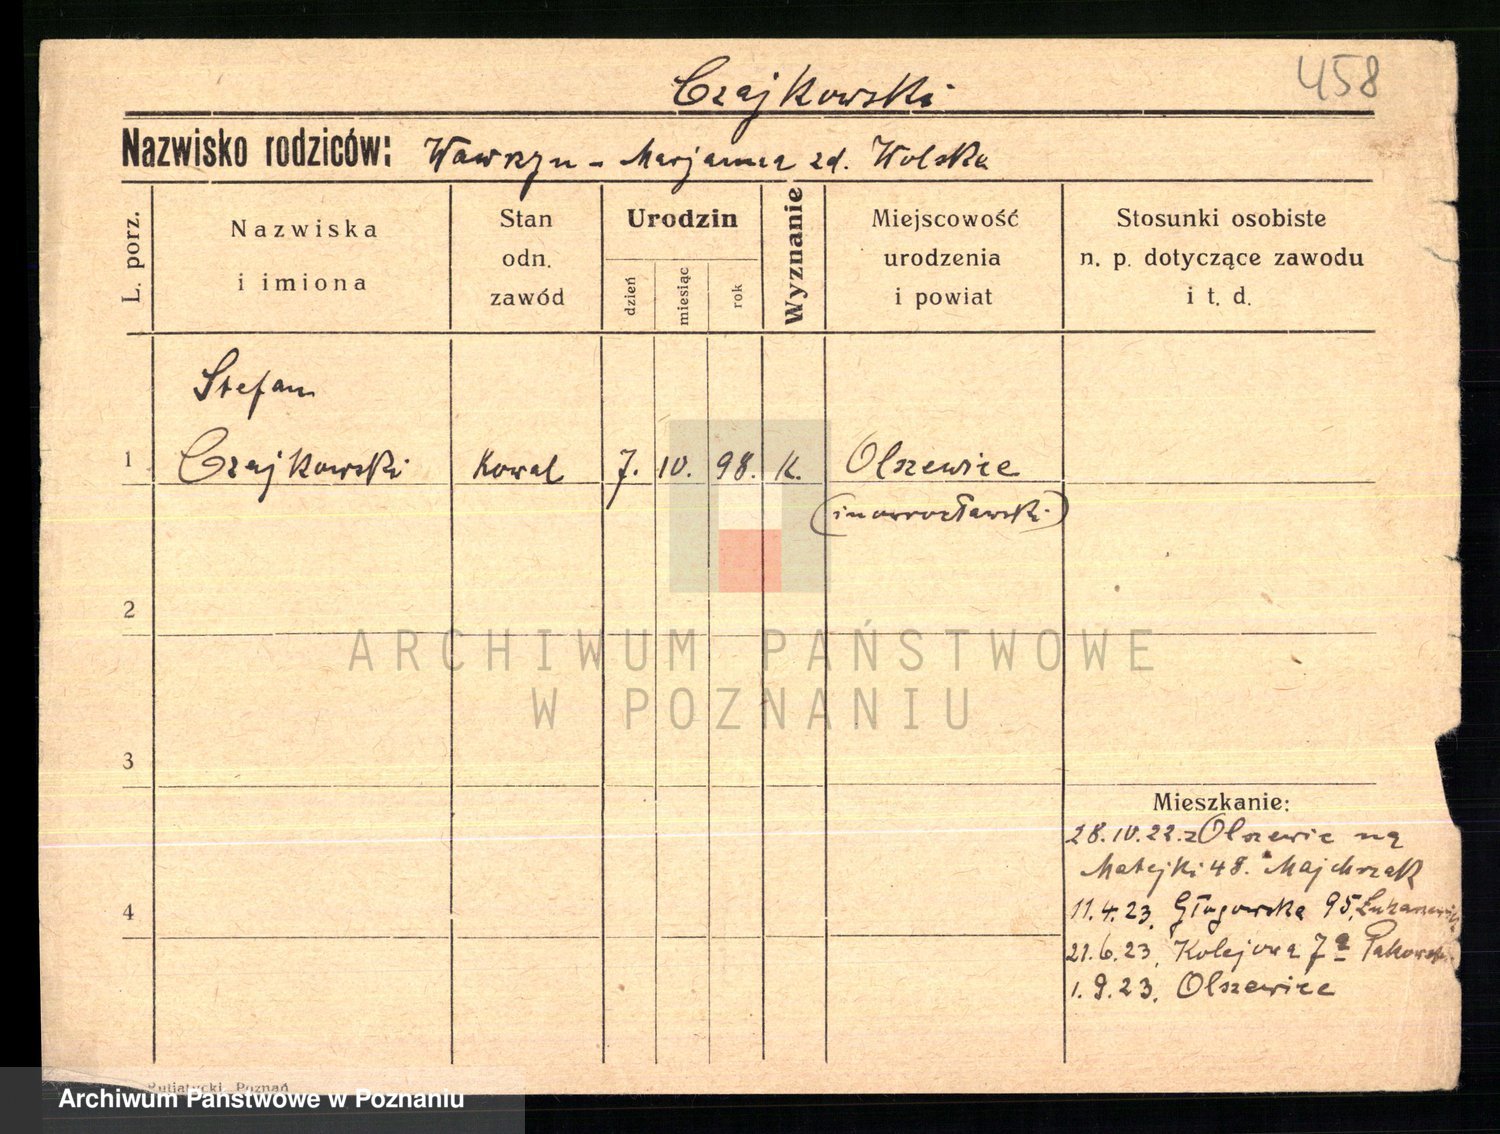 458
Czajkowski
Nazwisko rodziców: Wawrzyn - Marjanna zd. Wolska
L. porz.
Nazwiska
i imiona
Stan
odn.
zawód
Urodzin
dzień
miesiąc
rok
Wyznanie
Miejscowość
urodzenia
i powiat
Stosunki osobiste
n. p. dotyczące zawodu
i t. d.
Stefan
1 Czajkowski Kowal 7. 10. 98. K. Olszewice
(inowrocławski)
2
ARCHIWUM PAŃSTWOWE
W POZNANIU
3
Mieszkanie:
28.10.22. z Olszewic na
Matejki 48. Majchrzak
11.4.23. Głogowska 95,
4
21.6.23. Kolejowa 7a
1.9.23. Olszewice
Putiatycki, Poznań
Archiwum Państwowe w Poznaniu